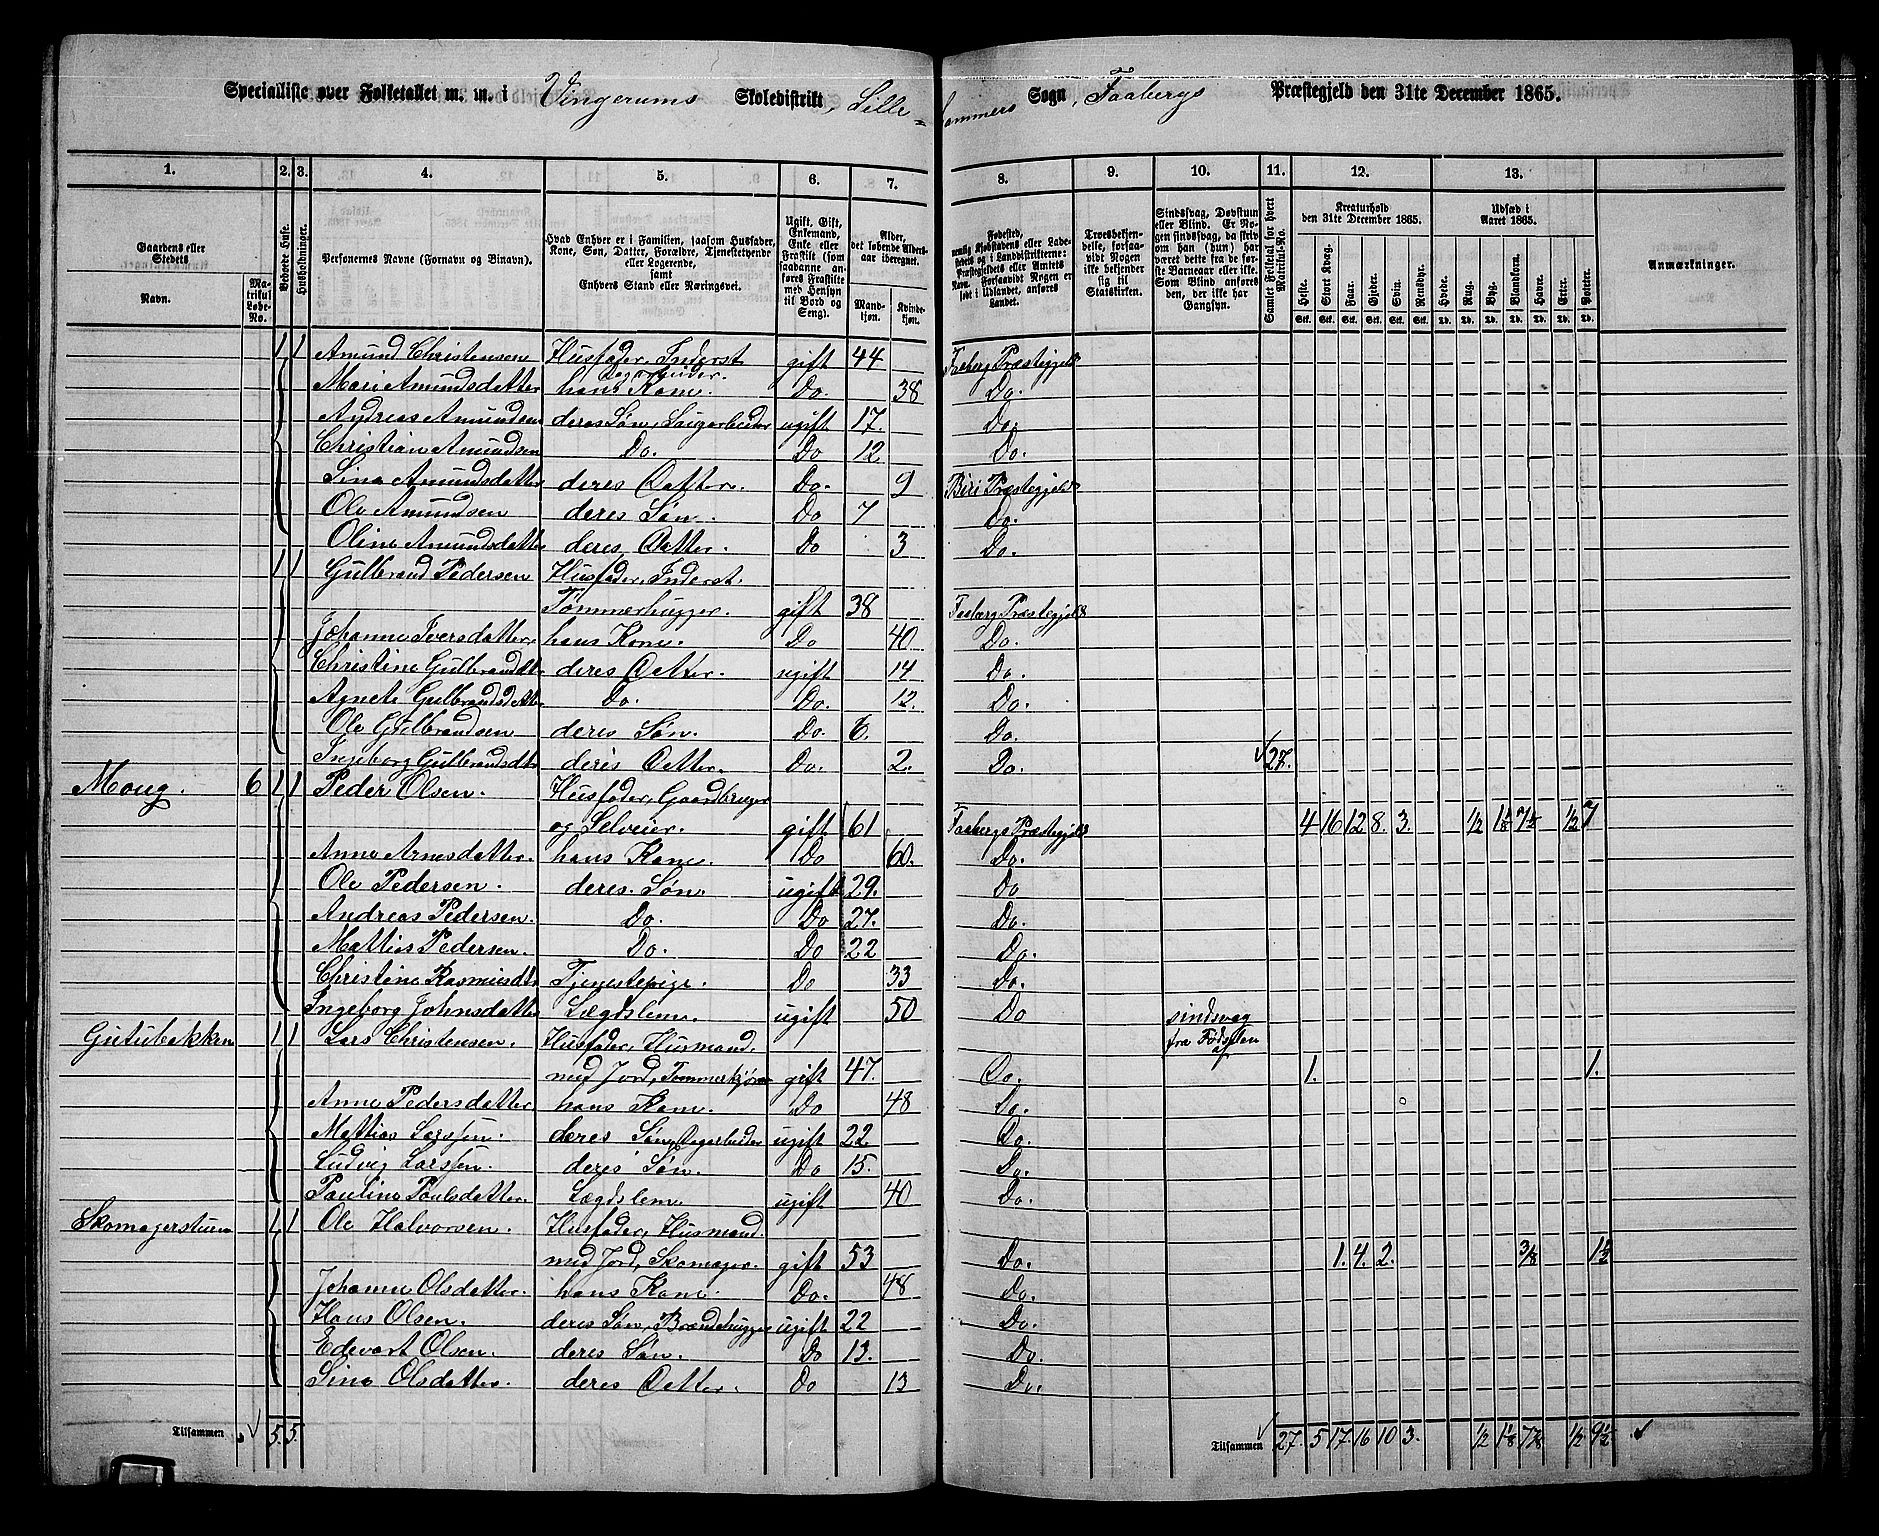 Specialliste over Folketallet m. m. i Vingerums Skoledistrikt, Lille=hammers Sogn, Faabergs Præstegjeld den 31te December 1865.
1. 2. 3. 4. 5. 6. 7. 8. 9. 10. 11. 12. 13.
Gaardens eller Stedets Navn.
Matrikul Løbe-No.
Beboede Huse.
Husholdninger.
Personernes Navne (Fornavn og Binavn).
Hvad Enhver er i Familien, saasom Husfader, Kone, Søn, Datter, Forældre, Tjenestetyende eller Logerende, samt Enhvers Stand eller Næringsvei.
Ugift, Gift, Enkemand, Enke eller Fraskilt (som saadanne anføres Fraskilte med Hensyn til Bord og Seng).
Alder, det løbende Alders-aar iberegnet.
Mand-kjøn. Kvinde-kjøn.
Fødested,
Troesbekjendelse, forsaavidt Nogen ikke bekjender sig til Statskirken.
Sindssvag, Døvstum eller Blind. Er Nogen sindssvag, da skrives om han (hun) har været dette fra de første Barneaar eller ikke. Som Blind anføres den, der ikke har Gangsyn.
Samlet Folketal for hvert Matrikul-No.
Kreaturhold den 31te December 1865.
Heste. Stort Kvæg. Faar. Gjeder. Svin. Rensdyr.
Udsæd i Aaret 1865.
Hvede. Rug. Byg. Blandkorn. Havre. Erter. Poteter.
Anmærkninger.
1 1 Amund Christensen Husfader, Inderst Dagarbeider. gift 44 Faaberg Præstegjeld
Mari Amundsdatter hans Kone. Do. 38 Do.
Andreas Amundsen deres Søn, Saugarbeider ugift 17. Do.
Christian Amundsen Do. Do 12 Do.
Sina Amundsdatter deres Datter. Do. 9 Biri Præstegjeld
Ole Amundsen deres Søn. Do 7 Do.
Oline Amundsdatter deres Datter. Do 3 Do.
1 1 Gulbrand Pedersen Husfader, Inderst.
Tømmerhugger. gift 38 Faaberg Præstegjeld
Johanne Iversdatter. hans Kone. Do 40 Do.
Christine Gulbrandsdtr deres Datter. ugift 14 Do.
Agnete Gulbrandsdatter Do. Do. 12. Do.
Ole Gulbrandsen deres Søn. Do. 6. Do.
Ingeborg Gulbrandsdtr deres Datter. Do. 2. Do. 27.
Moug. 6 1 1 Peder Olsen. Husfader, Gaardbruger
og Selveier. gift 61 Faabergs Præstegjeld 4 16 12 8. 3. 1/2 1 1/8 7 1/2 1/2 7
Anne Arnesdatter. hans Kone. Do 60. Do.
Ole Pedersen. deres Søn. ugift 29. Do
Andreas Pedersen. Do. Do 27. Do.
Mattias Pedersen. Do. Do 22 Do.
Christine Rasmusdtr Tjenestepige. Do 33 Do.
Ingeborg Johnsdatter Lægdslem. ugift 50 Do sindsvag
Gutubakken 1 1 Lars Christensen. Husfader, Husmand. fra Fødselen af
med Jord, Tømmerkjører gift 47. Do. 1. 1.
Anne Pedersdatter. hans Kone. Do 48 Do.
Mattias Larssen. deres Søn, Dagarbeider ugift 22. Do.
Ludvig Larssen. deres Søn. Do 15. Do.
Pauline Paulsdatter. Lægdslem. ugift 40 Do.
Skomagerstuen 1 1 Ole Halvorsen. Husfader, Husmand.
med Jord, Skomager. gift 53 Do. 1. 4. 2. 3/8 1 1/2
Johanne Olsdatter. hans Kone. Do. 48 Do.
Hans Olsen. deres Søn, Brændehugger ugift 22 Do.
Edevart Olsen. deres Søn. Do 13. Do.
Sina Olsdatter. deres Datter. Do 13 Do.
Tilsammen 5. 5.
Tilsammen 27. 5 17. 16 10 3. 1/2 1 1/8 7 7/8 1/2 9 1/2